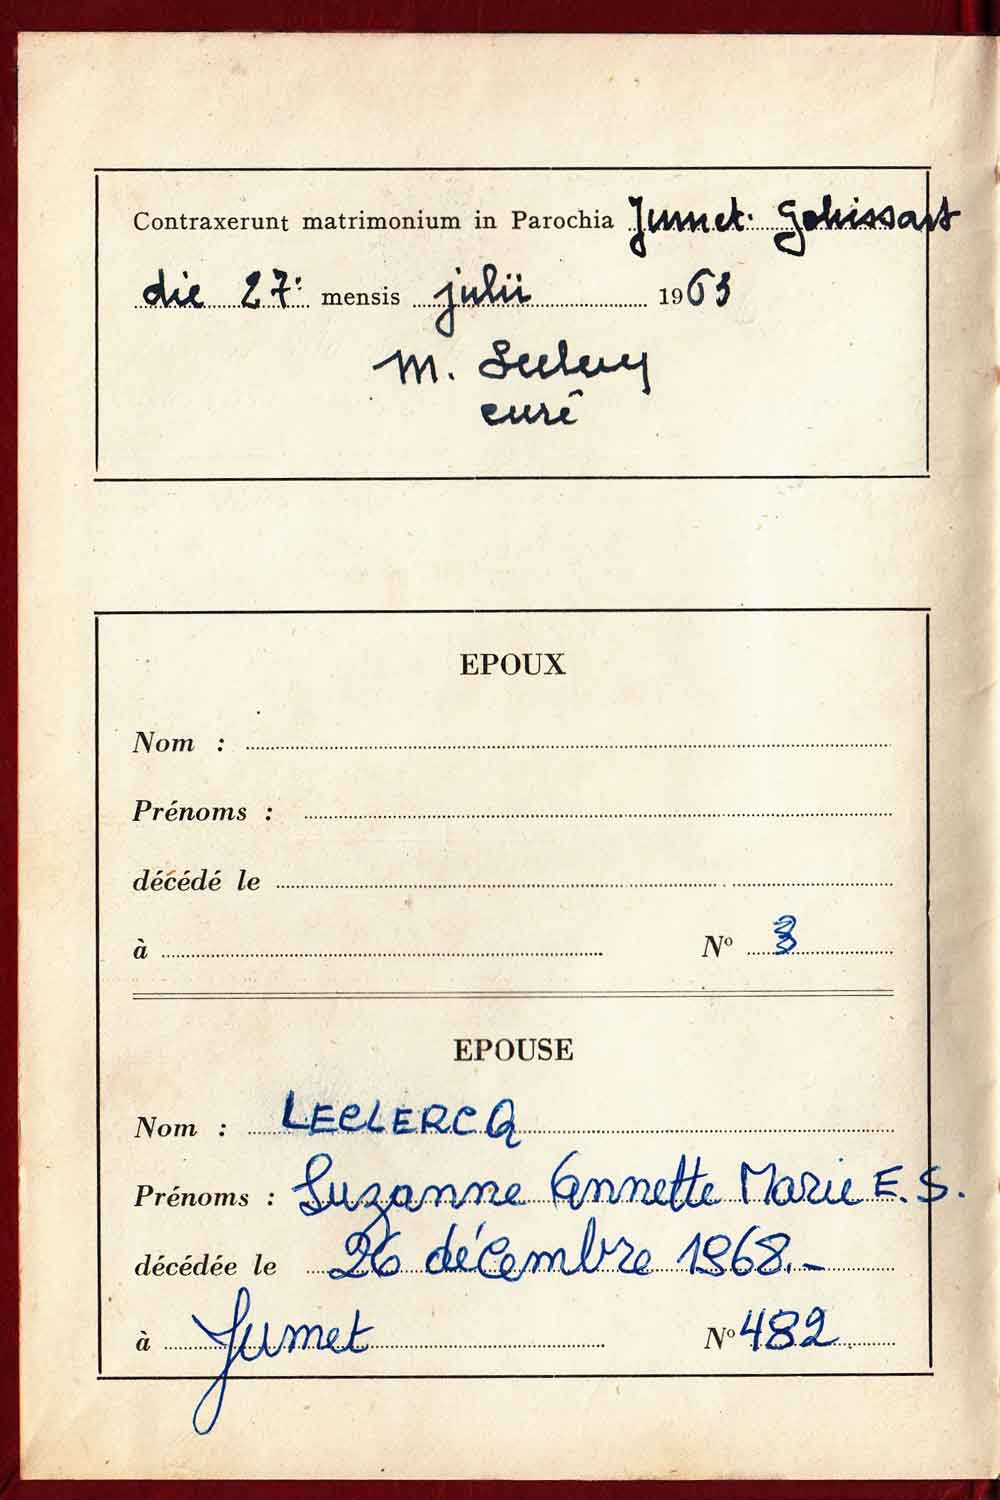 Contraxerunt matrimonium in Parochia Jumet-Gohissart
die 27: mensis julii 1963
M.
curé
EPOUX
Nom :
Prénoms :
décédé le
à Nº
EPOUSE
Nom : LECLERCQ
Prénoms : Suzanne Annette Marie E. S.
décédée le 26 décembre 1968.-
à Jumet Nº 482